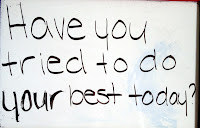 Have you
tried to do
your best today?